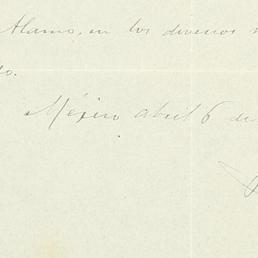 Alamo, en los diversos
México Abril 6 de